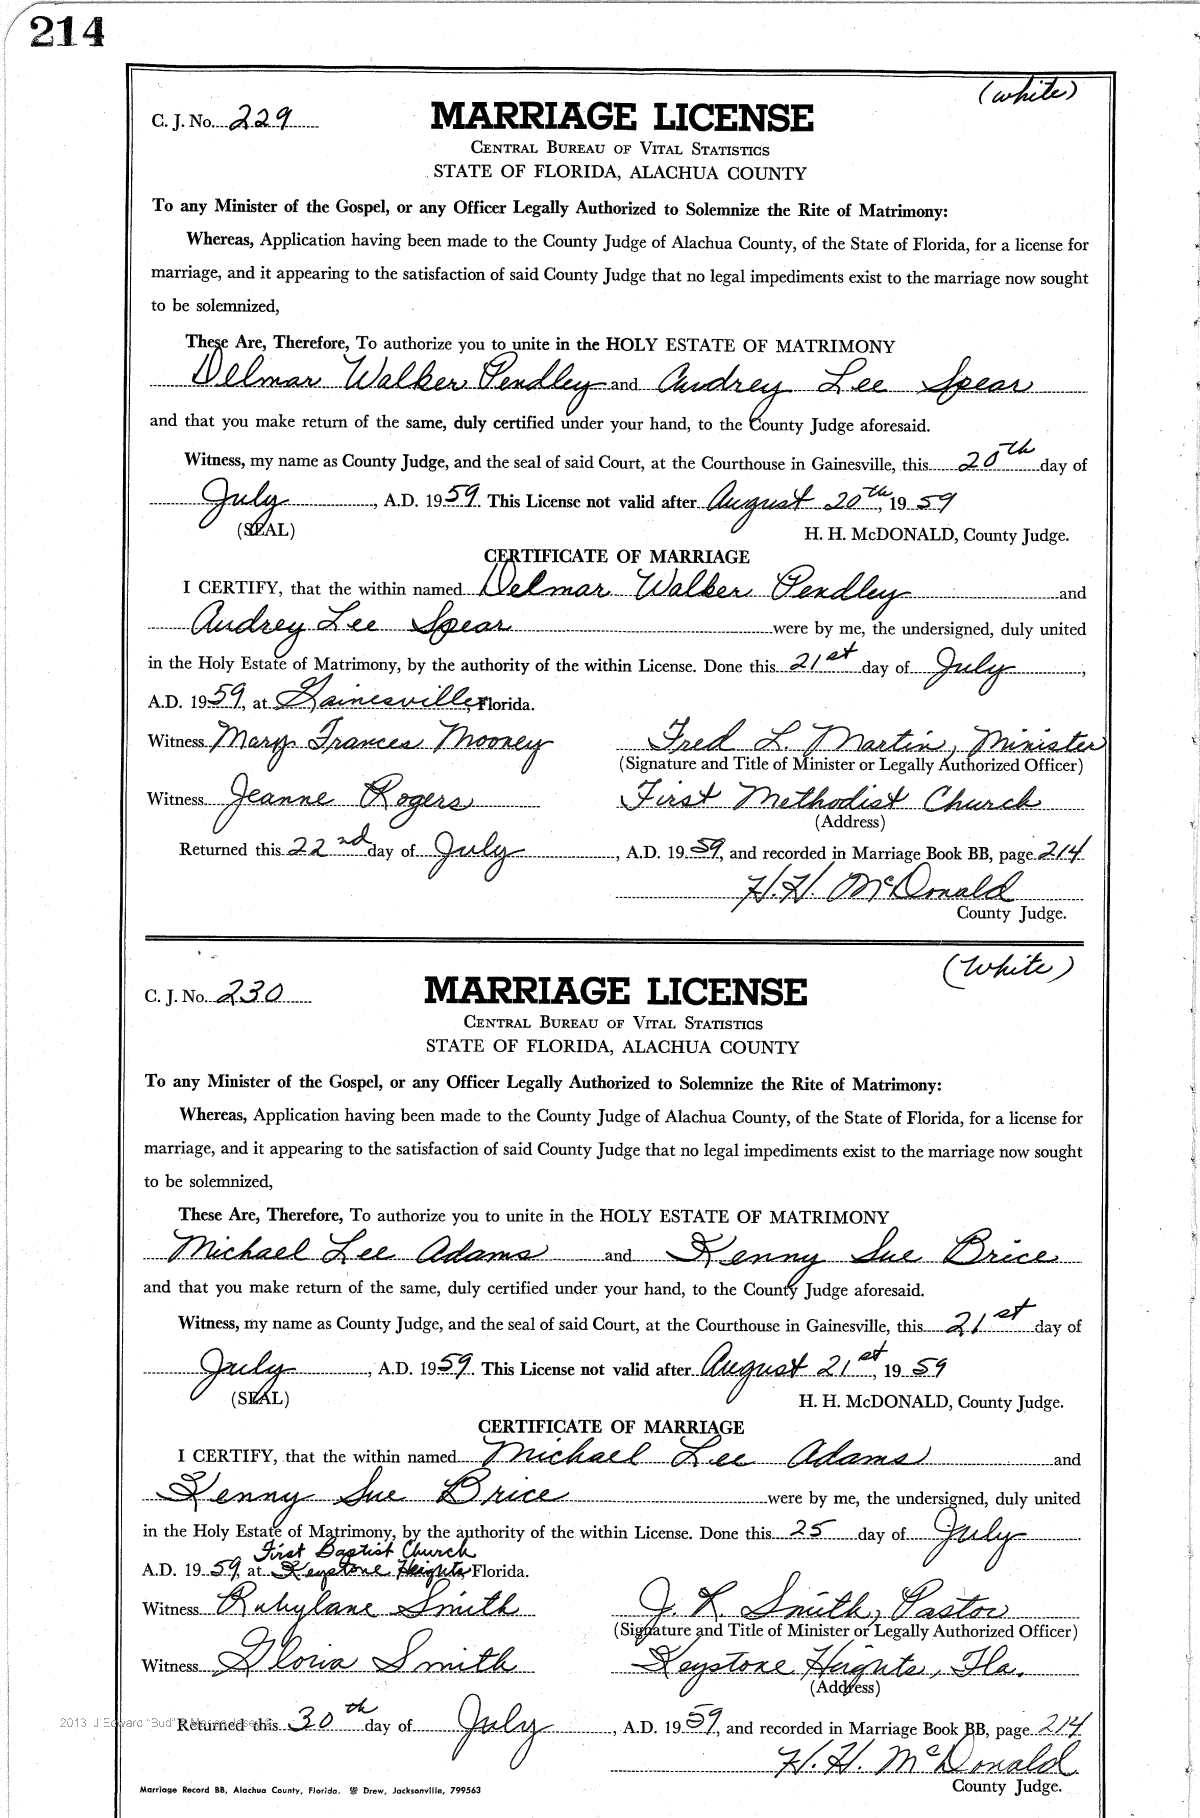 214
(white)
C. J. No. 229
MARRIAGE LICENSE
CENTRAL BUREAU OF VITAL STATISTICS
STATE OF FLORIDA, ALACHUA COUNTY
To any Minister of the Gospel, or any Officer Legally Authorized to Solemnize the Rite of Matrimony:
Whereas, Application having been made to the County Judge of Alachua County, of the State of Florida, for a license for
marriage, and it appearing to the satisfaction of said County Judge that no legal impediments exist to the marriage now sought
to be solemnized,
These Are, Therefore, To authorize you to unite in the HOLY ESTATE OF MATRIMONY
Delmar Walker Pendley and Audrey Lee Spear
and that you make return of the same, duly certified under your hand, to the County Judge aforesaid.
Witness, my name as County Judge, and the seal of said Court, at the Courthouse in Gainesville, this 20th day of
July, A.D. 1959. This License not valid after August 20th, 1959
(SEAL) H. H. McDONALD, County Judge.
CERTIFICATE OF MARRIAGE
I CERTIFY, that the within named Delmar Walker Pendley and
Audrey Lee Spear were by me, the undersigned, duly united
in the Holy Estate of Matrimony, by the authority of the within License. Done this 21st day of July,
A.D. 1959, at Gainesville, Florida.
Witness Mary Frances Mooney Fred L. Martin, Minister
(Signature and Title of Minister or Legally Authorized Officer)
Witness Jeanne Rogers First Methodist Church
(Address)
Returned this 22nd day of July, A.D. 1959, and recorded in Marriage Book BB, page 214
H. H. McDonald
County Judge.
(White)
C. J. No. 230
MARRIAGE LICENSE
CENTRAL BUREAU OF VITAL STATISTICS
STATE OF FLORIDA, ALACHUA COUNTY
To any Minister of the Gospel, or any Officer Legally Authorized to Solemnize the Rite of Matrimony:
Whereas, Application having been made to the County Judge of Alachua County, of the State of Florida, for a license for
marriage, and it appearing to the satisfaction of said County Judge that no legal impediments exist to the marriage now sought
to be solemnized,
These Are, Therefore, To authorize you to unite in the HOLY ESTATE OF MATRIMONY
Michael Lee Adams and Kenny Sue Brice
and that you make return of the same, duly certified under your hand, to the County Judge aforesaid.
Witness, my name as County Judge, and the seal of said Court, at the Courthouse in Gainesville, this 21st day of
July, A.D. 1959. This License not valid after August 21st, 1959
(SEAL) H. H. McDONALD, County Judge.
CERTIFICATE OF MARRIAGE
I CERTIFY, that the within named Michael Lee Adams and
Kenny Sue Brice were by me, the undersigned, duly united
in the Holy Estate of Matrimony, by the authority of the within License. Done this 25 day of July
First Baptist Church
A.D. 1959, at Keystone Heights, Florida.
Witness Rubylane Smith J. R. Smith, Pastor
(Signature and Title of Minister or Legally Authorized Officer)
Witness Gloria Smith Keystone Heights, Fla.
(Address)
2013 J Edward "Bud"
Returned this 30th day of July, A.D. 1959, and recorded in Marriage Book BB, page 214
H. H. McDonald
County Judge.
Marriage Record BB, Alachua County, Florida. Drew, Jacksonville, 799563